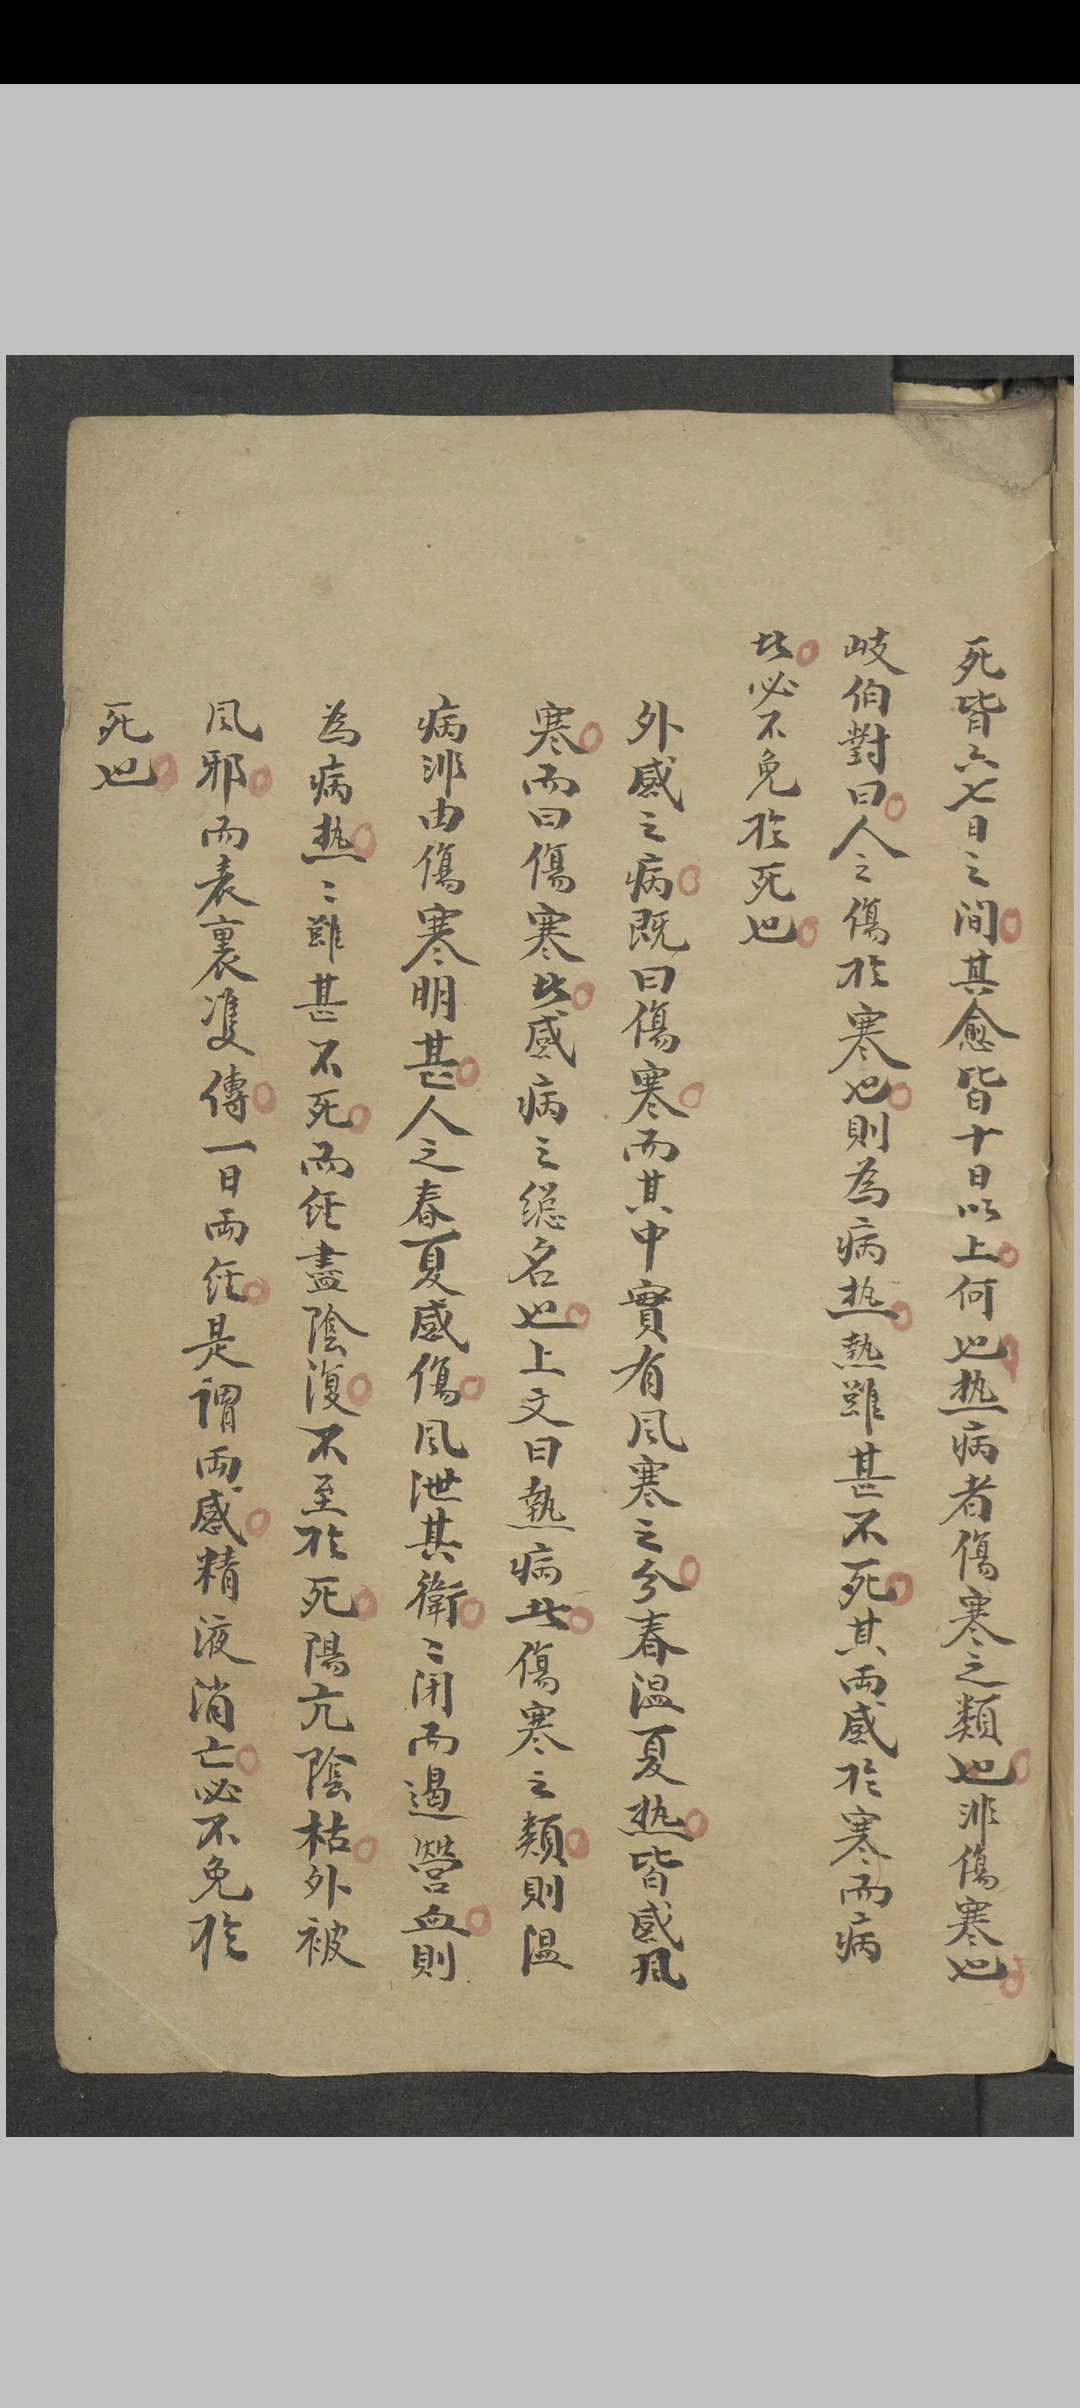 死皆六七日之间其愈皆十日以上何也热病者傷寒之類也非傷寒也
岐伯對曰人之傷於寒也則為病热熱雖甚不死其両感於寒而病
此必不免於死也
外感之病既曰傷寒而其中實有风寒之分春温夏热皆感风
寒而曰傷寒此感病之總名也上文曰熱病此傷寒之類則温
病非由傷寒明甚人之春夏感傷风泄其衛〻闭而遏營血則
為病热〻雖甚不死而经盡陰復不至於死陽亢陰枯外被
风邪而表裏双傳一日両经是謂両感精液消亡必不免於
死也